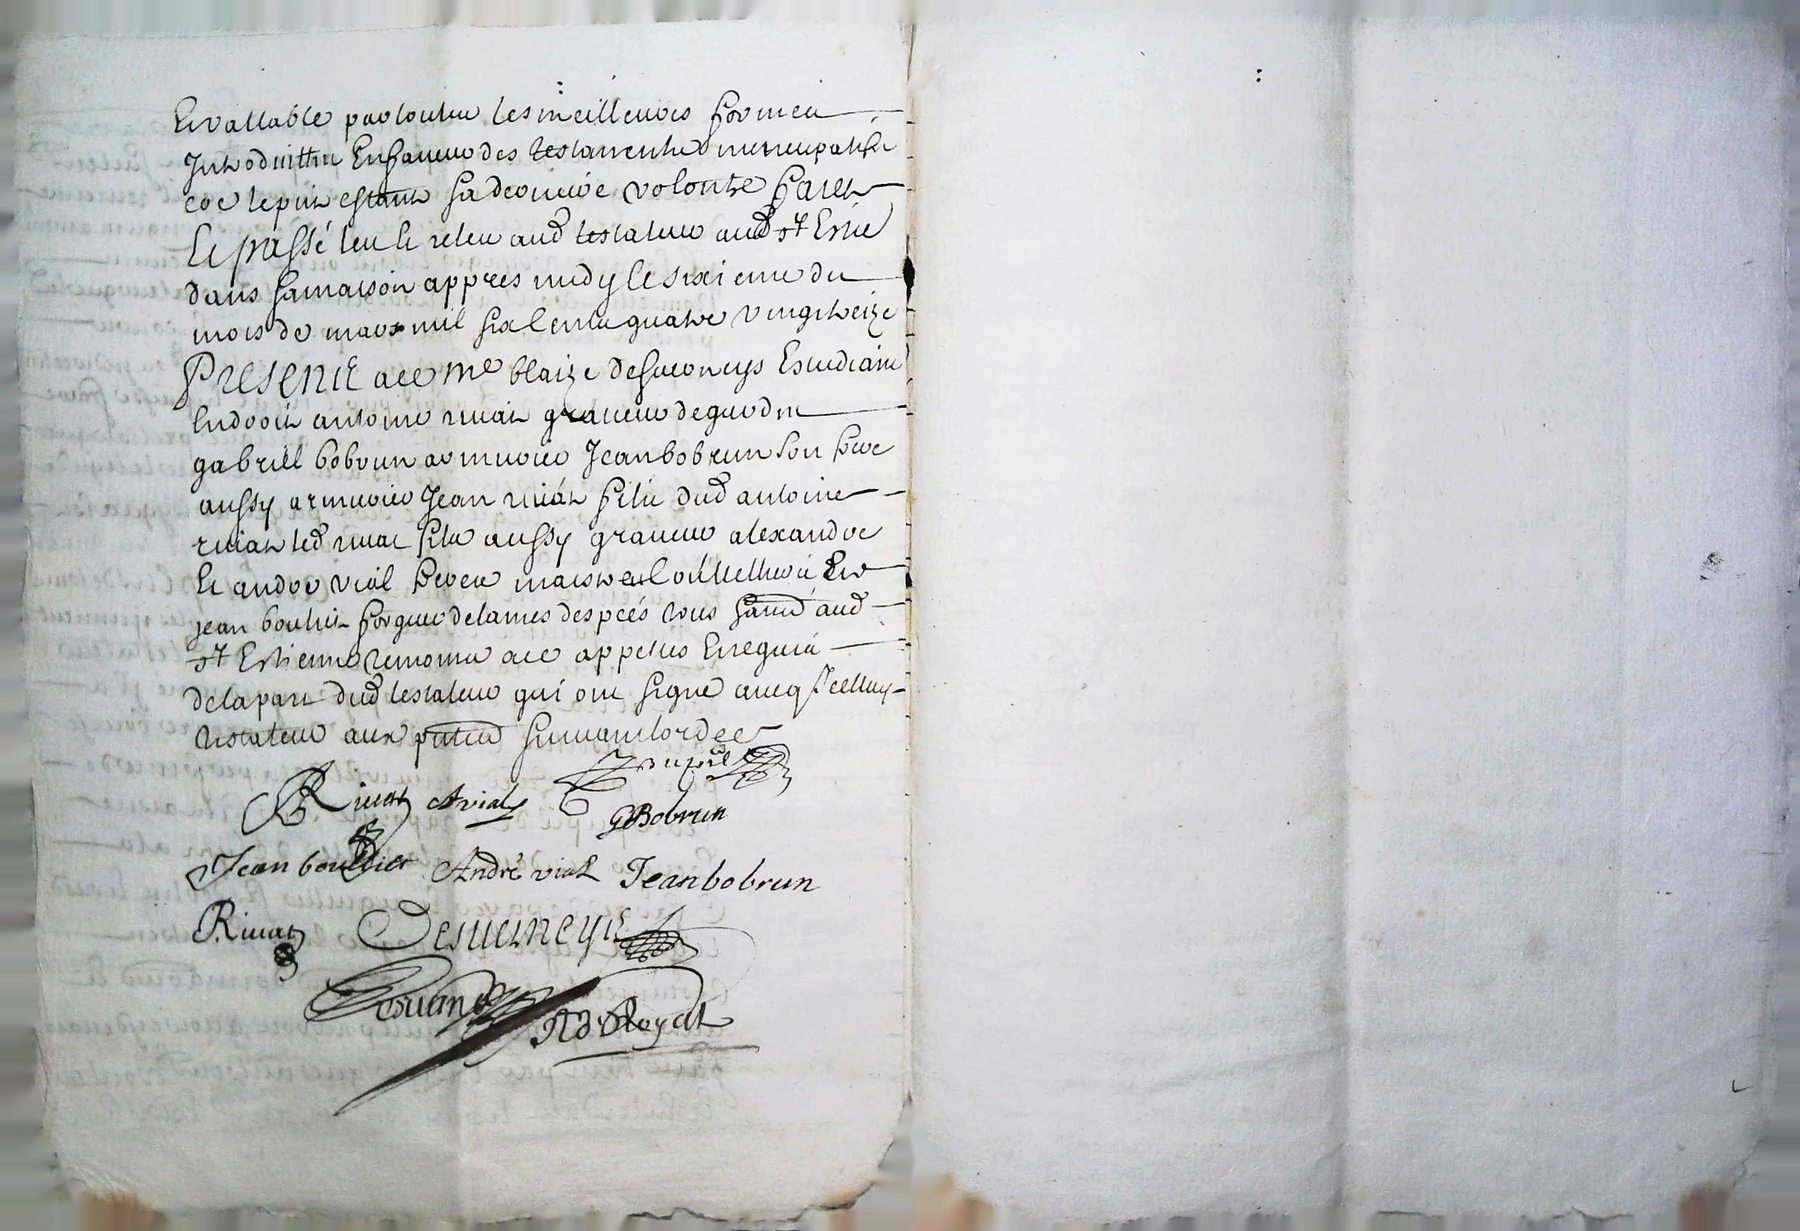 Et vallable par toutes les meilleures formes
Introduittes En faveur des testaments nuncupatifs
car le pnt estant sa derniere volonté Faict
Et passé leu et releu aud testateur aud st Esne
dans sa maison appres midy le sixieme du
mois de mars mil six cents quatre vingt treize
Presents ace me blaize desuerneys Estudiant
En droit antoine rivat graveur de gardes
gabriell bobrun armurier Jean bobrun son frere
aussy armurier Jean rivat fils dud antoine
rivat led rivat fils aussy graveur alexandre
Et andre vial freres maistres coutelliers Et
jean boulhet forgeur de lames despeés tous aud
st Estienne temoins ace appellés Et requis
de la part dud testateur qui ont signé avecq Icelluy
testateur aux suivant lordce
Rivat A vial
G Bobrun
Jean boullier André vial Jean bobrun
Rivat Desuerneys